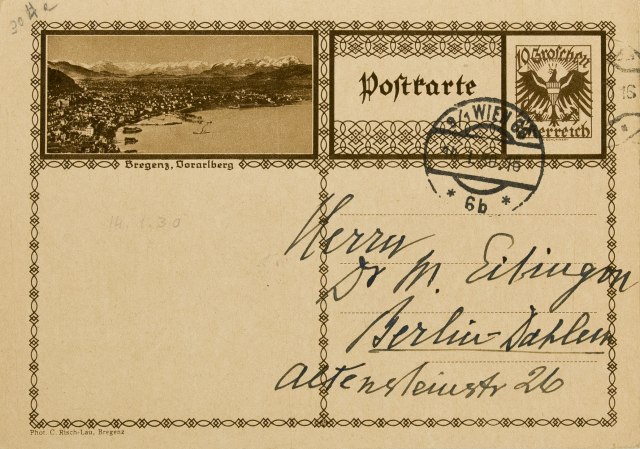 Postkarte
10 Groschen
Österreich
9/1 WIEN 66
* 6b *
Bregenz, Vorarlberg
14.1.30
Herrn
Dr M. Eitingon
Berlin-Dahlem
Altensteinstr 26
Phot. C. Risch-Lau, Bregenz